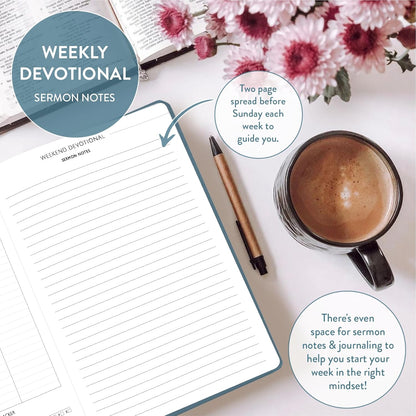 WEEKLY
DEVOTIONAL
SERMON NOTES
Two page
spread before
Sunday each
week to
guide you.
WEEKEND DEVOTIONAL
SERMON NOTES
There's even
space for sermon
notes & journaling to
help you start your
week in the right
mindset!